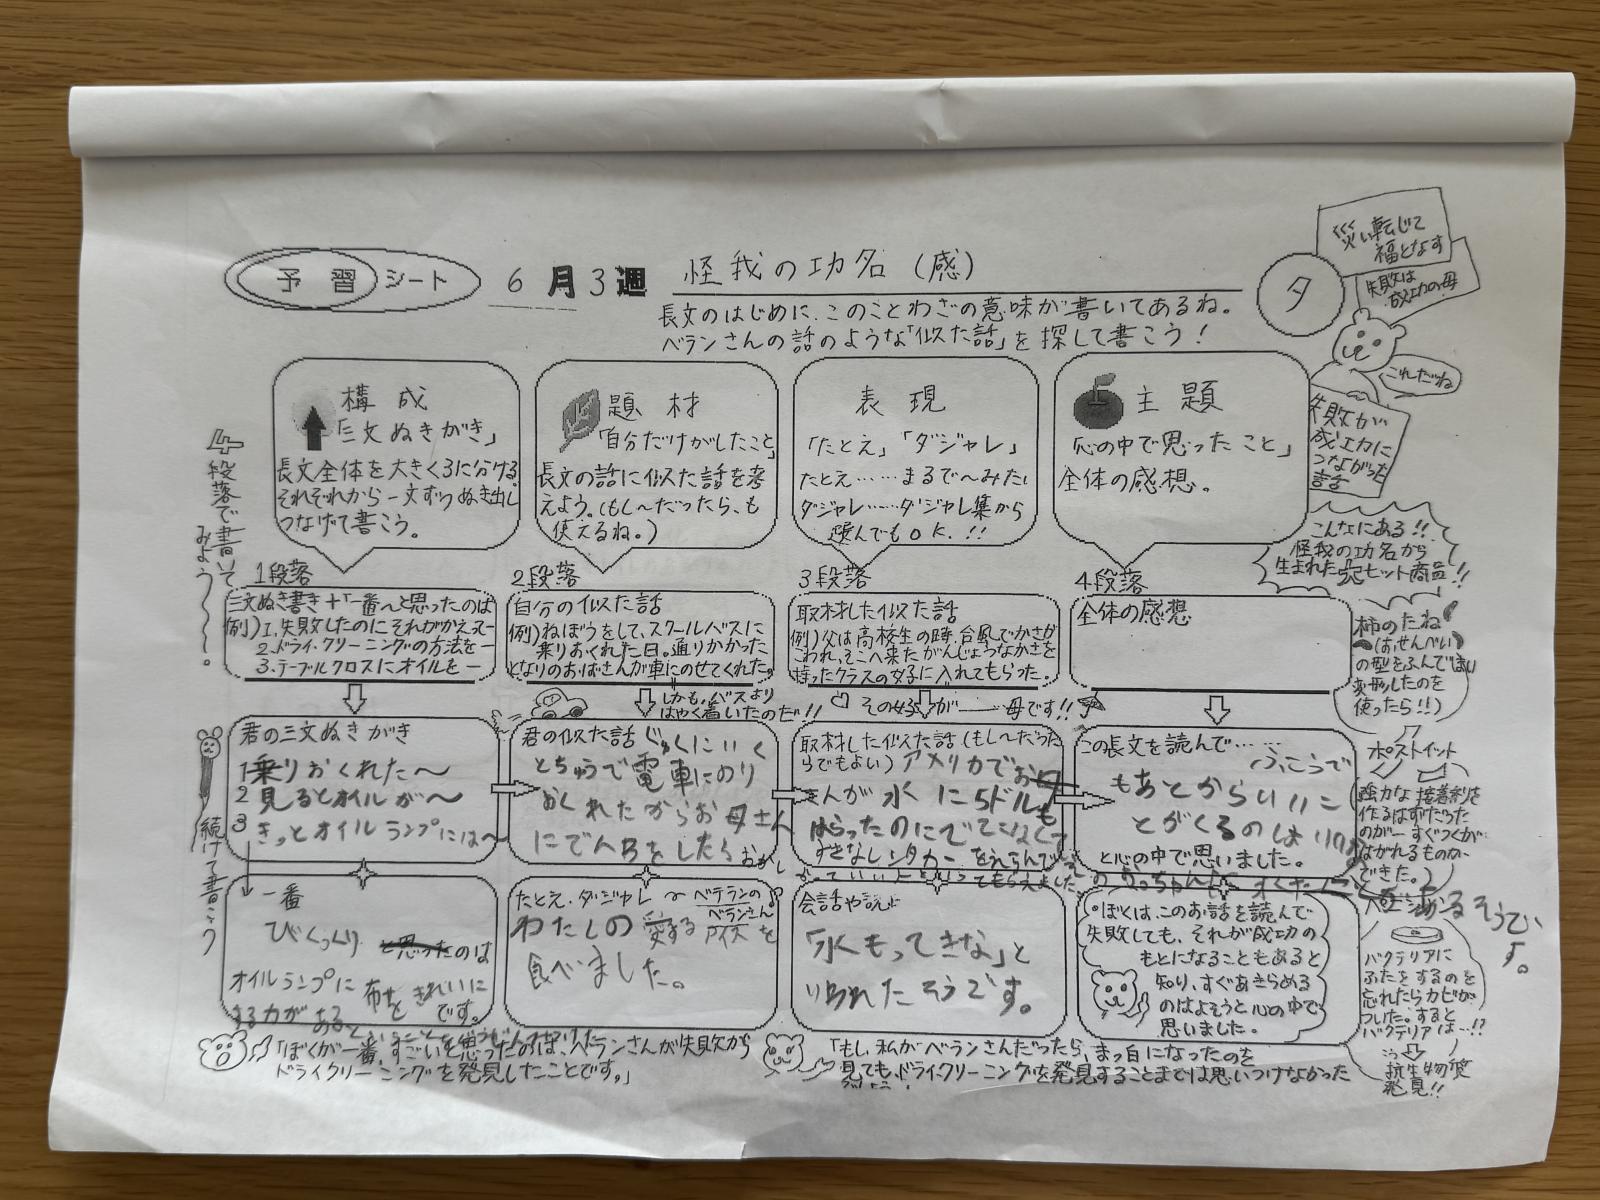 予習シート 6月3週 怪我の功名(感)
長文のはじめに、このことわざの意味が書いてあるね。
ベランさんの話のような「似た話」を探して書こう!
タ
災い転じて
福となす
失敗は
成功の母
これだね
失敗が
成功に
つながった
話
4段落で書いて
みよう〜〜〜。
構成
「三文ぬきがき」
長文全体を大きく3に分ける。
それぞれから一文ずつぬき出し
つなげて書こう。
題材
「自分だけがしたこと」
長文の話に似た話を考
えよう。(もし〜だったら、も
使えるね。)
表現
「たとえ」「ダジャレ」
たとえ……まるで〜みたい
ダジャレ……ダジャレ集から
選んでもOK.!!
主題
「心の中で思ったこと」
全体の感想。
こんなにある!!
怪我の功名から
生まれた大ヒット商品!!
1段落
三文ぬき書き+「一番〜と思ったのは
例)1.失敗したのにそれがかえって
2.ドライクリーニングの方法を一
3.テーブルクロスにオイルを一
2段落
自分の似た話
例)ねぼうをして、スクールバスに
乗りおくれた日。通りかかった
となりのおばさんが車にのせてくれた。
しかも、バスより
はやく着いたのだ!!
3段落
取材した似た話
例)父は高校生の時、台風でかさが
こわれ、そこへ来たがんじょうなかさを
持ったクラスの女子に入れてもらった。
その女子が――母です!!
4段落
全体の感想
柿のたね
(おせんべい)
の型をふんで
変形したのを
使ったら!!)
君の三文ぬきがき
1乗りおくれた〜
2見るとオイルが〜
3きっとオイルランプには〜
君の似た話 じゅくにいく
とちゅうで電車にのり
おくれたからお母さん
にでんわをしたら
取材した似た話(もし〜だった
らでもよい)アメリカでお母
さんが水に5ドルも
はらったのにでてこなくて
すきなレンタカーをえらんで
この長文を読んで……
ふこうで
もあとからいいこ
とがくるのは
と心の中で思いました。
ポストイット
強力な接着剤を
作るはずだった
のが一すぐつくが
はがれるものが
できた。)
続けて書こう
一番
びっくり と思ったのは
オイルランプに 布を きれいに
する力がある です。
たとえ、ダジャレ 〜ベテランの
ベランさん
わたしの愛するアイスを
食べました。
会話や説に
「水もってきな」と
いわれたそうです。
•ぼくは、このお話を読んで
失敗しても、それが成功の
もとになることもあると
知り、すぐあきらめる
のはよそうと心の中で
思いました。
そうで
す。
バクテリアに
ふたをするのを
忘れたらカビが
ついた。すると
バクテリアは…!?
抗生物質
発見!!
「ぼくが一番、すごいと思ったのは、ベランさんが失敗から
ドライクリーニングを発見したことです。」
「もし、私がベランさんだったら、まっ白になったのを
見ても、ドライクリーニングを発見することまでは思いつけなかった